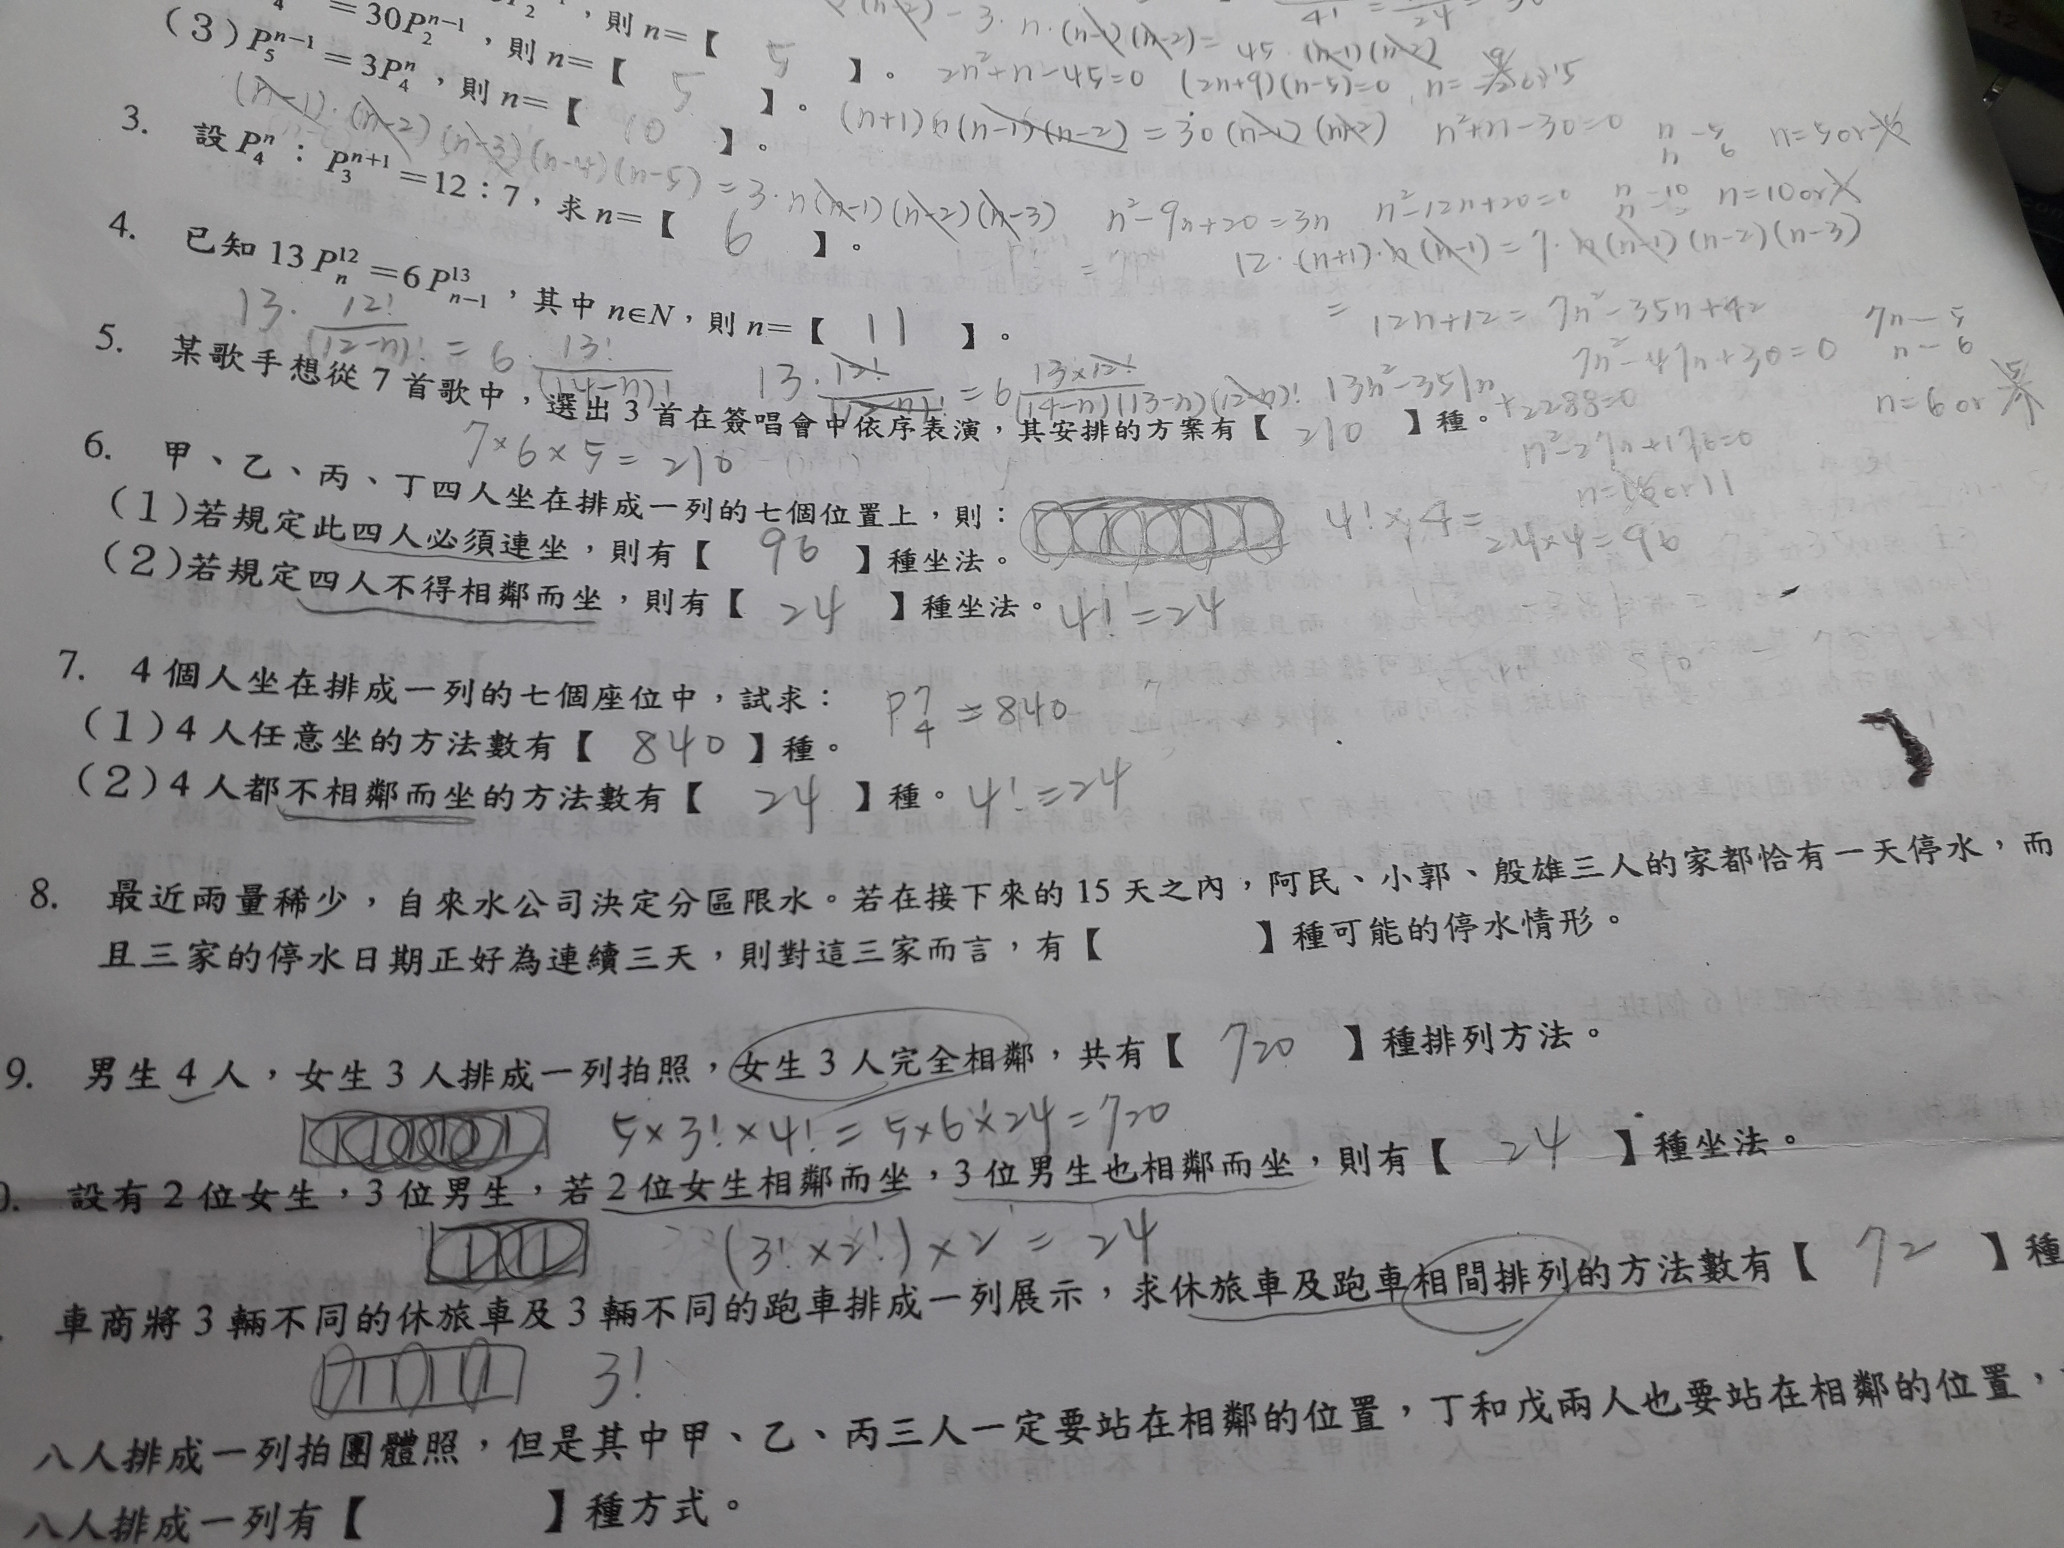 =30P₂ⁿ⁻¹，則 n=【 5 】。 2n²+n-45=0 (2n+9)(n-5)=0
(3) P₅ⁿ⁻¹=3P₄ⁿ，則 n=【 10 】。 (n+1)n(n-1)(n-2)=30(n-1)(n-2) n²+n-30=0
(n-1)·(n-2)(n-3)(n-4)(n-5)=3·n(n-1)(n-2)(n-3) n²-9n+20=3n n²-12n+20=0
3. 設 P₄ⁿ：P₃ⁿ⁺¹=12：7，求 n=【 6 】。 12·(n+1)·n(n-1)=7·n(n-1)(n-2)(n-3)
12n+12=7n²-35n+42
7n²-47n+30=0
4. 已知 13P_n^12=6P_{n-1}^13，其中 n∈N，則 n=【 11 】。
13·12!/(12-n)!=6·13!/(14-n)! 13·12!/(12-n)!=6·13×12!/(14-n)(13-n)(12-n)! 13n²-351n+2288=0
n²-27n+176=0
n=16or11
5. 某歌手想從 7 首歌中，選出 3 首在簽唱會中依序表演，其安排的方案有【 210 】種。
7×6×5=210
6. 甲、乙、丙、丁四人坐在排成一列的七個位置上，則：
(1)若規定此四人必須連坐，則有【 96 】種坐法。 4!×4= 24×4=96
(2)若規定四人不得相鄰而坐，則有【 24 】種坐法。 4!=24
7. 4 個人坐在排成一列的七個座位中，試求： P₄⁷=840
(1) 4 人任意坐的方法數有【 840 】種。
(2) 4 人都不相鄰而坐的方法數有【 24 】種。 4!=24
8. 最近雨量稀少，自來水公司決定分區限水。若在接下來的 15 天之內，阿民、小郭、殷雄三人的家都恰有一天停水，而
且三家的停水日期正好為連續三天，則對這三家而言，有【 】種可能的停水情形。
9. 男生 4 人，女生 3 人排成一列拍照，女生 3 人完全相鄰，共有【 720 】種排列方法。
5×3!×4!=5×6×24=720
設有 2 位女生，3 位男生，若 2 位女生相鄰而坐，3 位男生也相鄰而坐，則有【 24 】種坐法。
(3!×2!)×2=24
車商將 3 輛不同的休旅車及 3 輛不同的跑車排成一列展示，求休旅車及跑車相間排列的方法數有【 72 】種
3!
八人排成一列拍團體照，但是其中甲、乙、丙三人一定要站在相鄰的位置，丁和戊兩人也要站在相鄰的位置，
八人排成一列有【 】種方式。